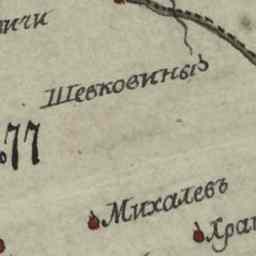 ичи
Шевковины
77
Михалевъ
Хра